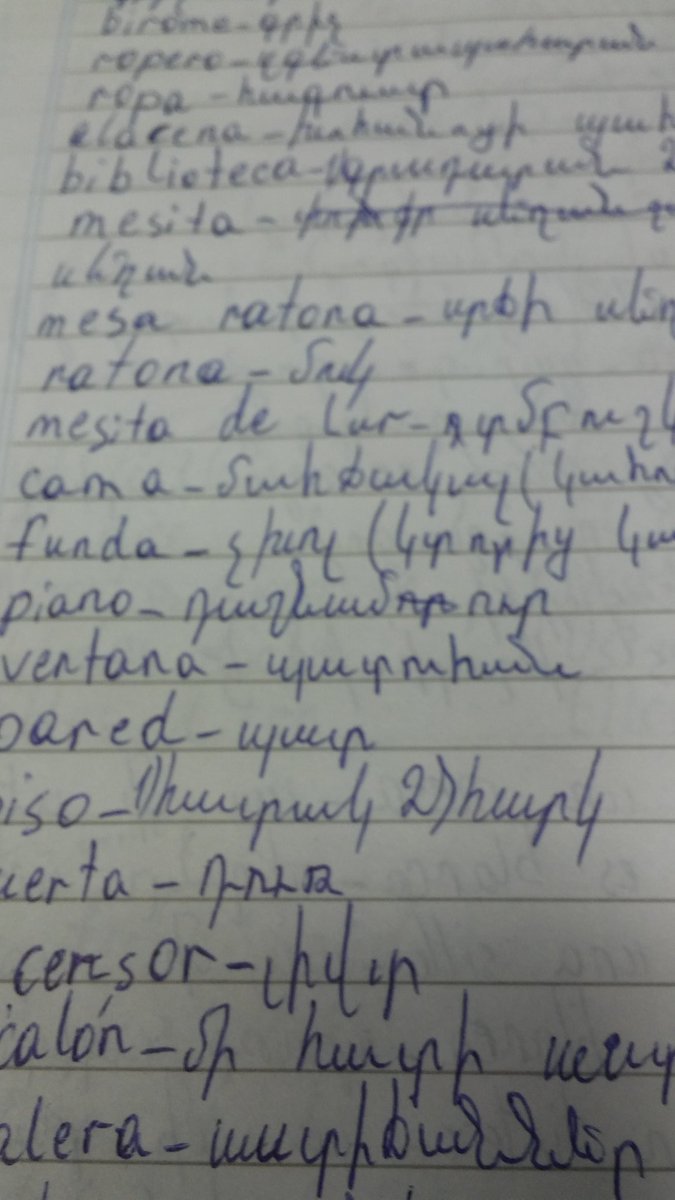 birome - գրիչ
ropero - զգեստապահարան
ropa - հագուստ
alacena - խոհանոցի պահ
biblioteca - 1) գրադարան 2
mesita - փոքր սեղան
սեղան
mesa ratona - սրճի սեղ
ratona - մուկ
mesita de luz -
cama - մահճակալ (կահու
funda - չխոլ (կտորից կա
piano - դաշնամուր
ventana - պատուհան
pared - պատ
iso - 1) հատակ 2) հարկ
uerta - դուռ
censor - լիֆտ
calón - մի հատի աստ
alera - աստիճաններ